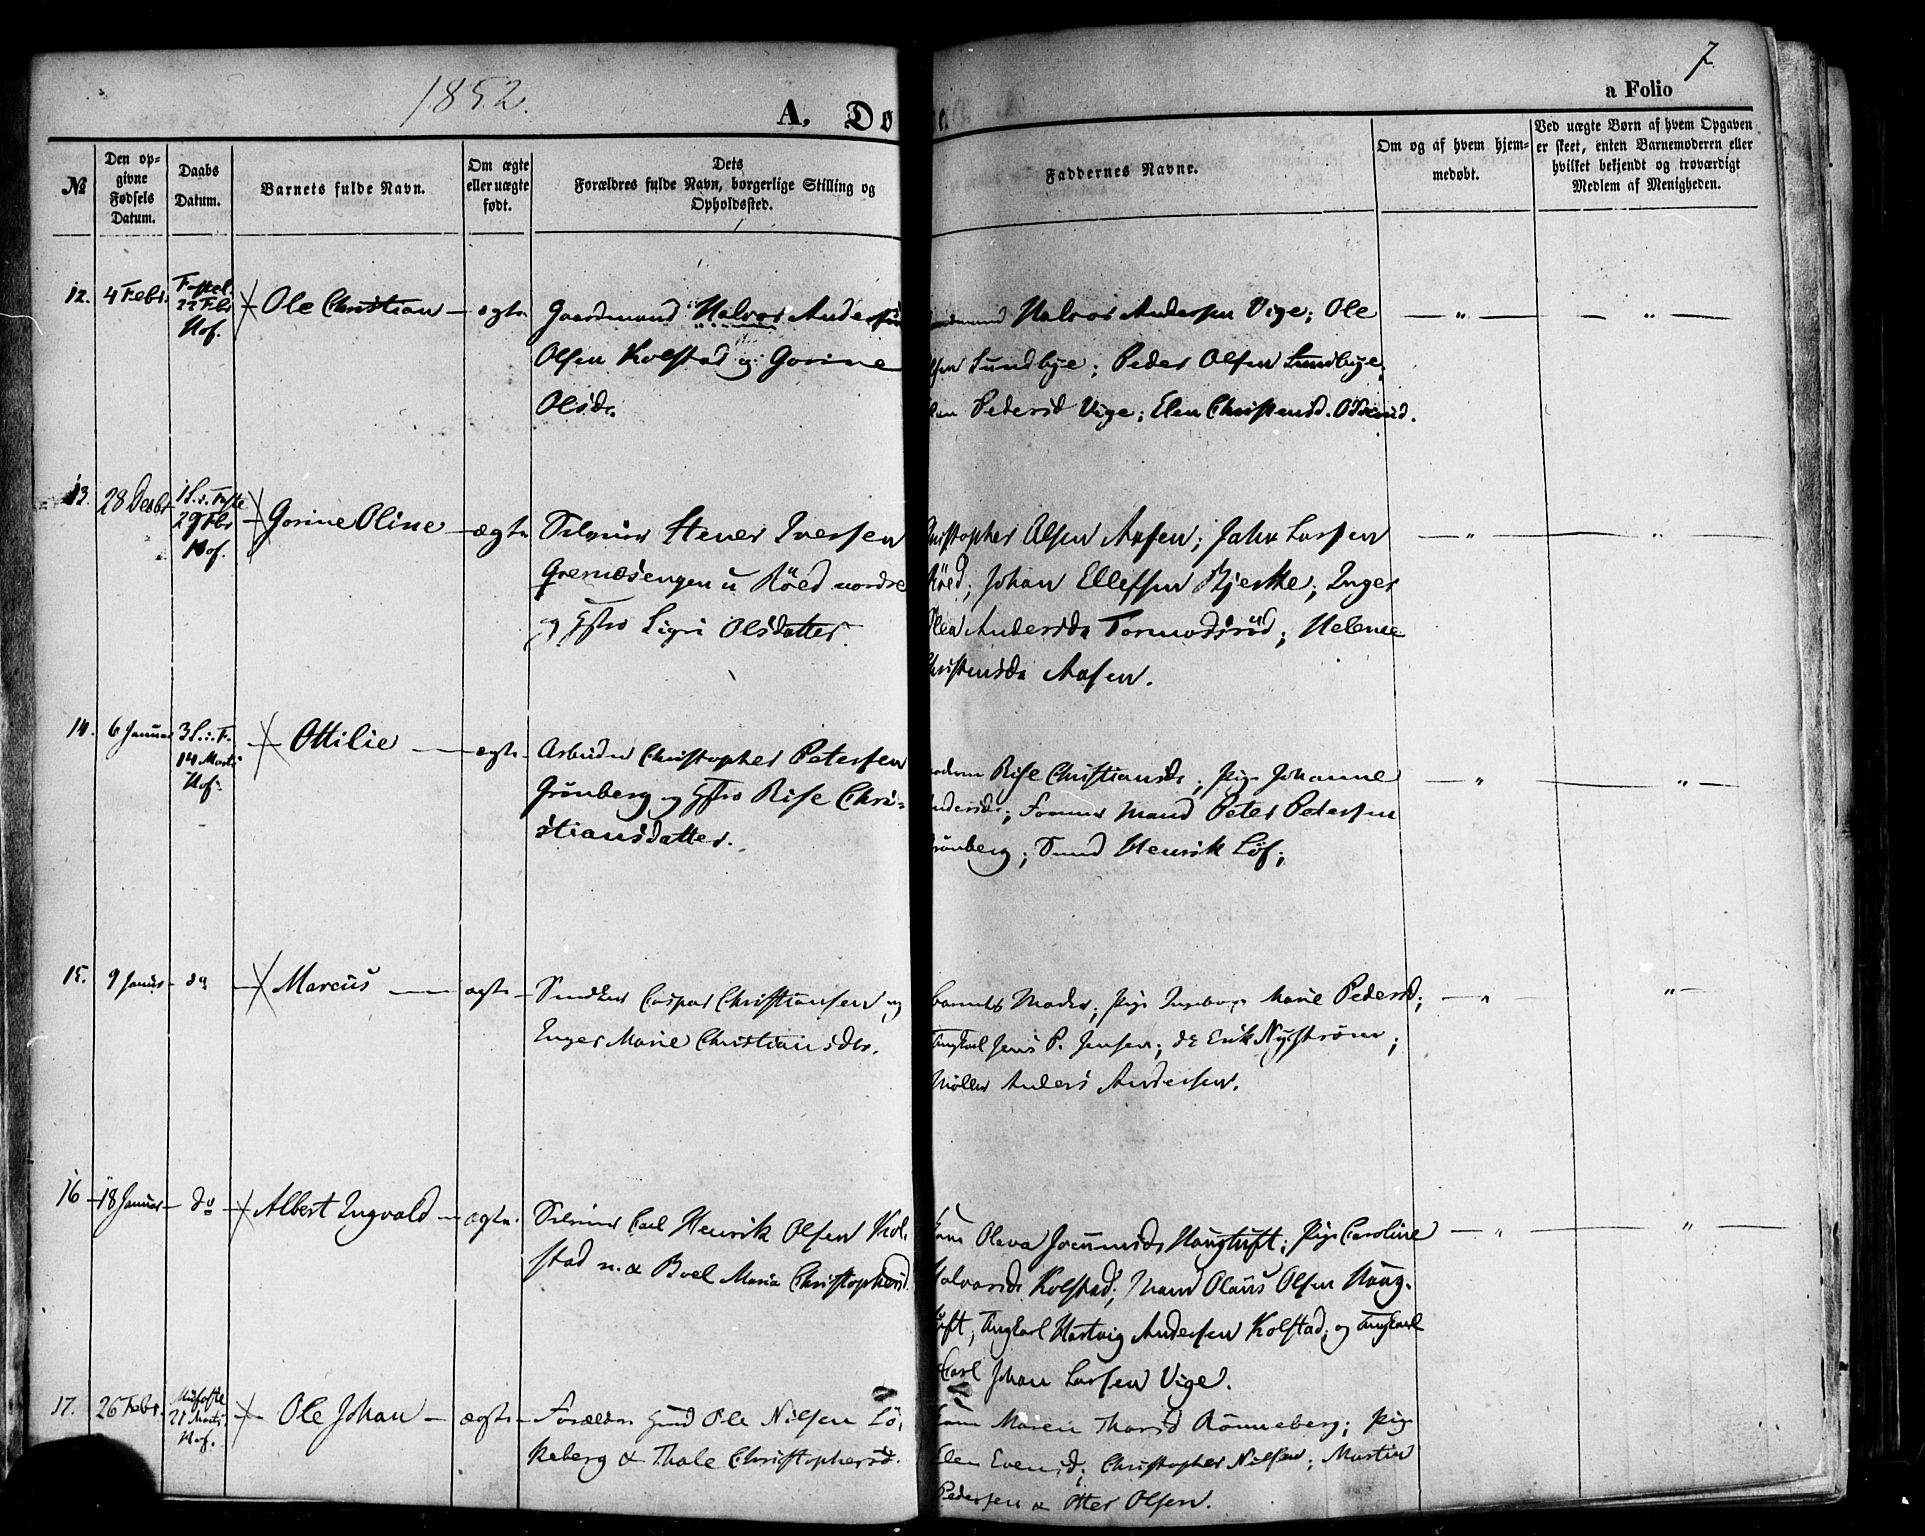 1852.
7
A. Dø
a Folio
№
Den op-
givne
Fødsels
Datum.
Daabs
Datum.
Barnets fulde Navn.
Om ægte
eller uægte
født.
Dets
Forældres fulde Navn, borgerlige Stilling og
Opholdssted.
Faddernes Navne.
Om og af hvem hjem-
medøbt.
Ved uægte Børn af hvem Opgaven
er skeet, enten Barnemoderen eller
hvilket bekjendt og troværdigt
Medlem af Menigheden.
12. 4 Febr. Fastel. 22 Febr Hof. Ole Christian — ægte Gaardmand Halvor Andersen
Olsen Kolstad og Gorine
Olsd.
Halvor Andersen Vige; Ole — " — — " —
Sundbye; Peder Olsen Sundbye;
Pedersd Vige; Elen Christensd.
13. 28 Decbr 1 S. i Faste 29 Febr Hof. Gorine Oline — ægte Selveier Stener Iversen
u Röed nordre
og Hstro Sigri Olsdatter.
Christopher Olsen Aasen; John Larsen — " — "
Röed; Johan Ellefsen Bjerke; Inger
Olea Andersda Tormodsröd; Helene
Christensda Aasen.
14. 6 Januar 3 S. i F. 14 Marts Hof. Ottilie — ægte Arbeider Christopher Petersen
Grönberg og Hstro Rise Chri-
stiansdatter.
Moderen Rise Christiansdr; Pige Johanne — " — "
Andersdr; Mand Peter Pedersen
Grönberg; Svend Henrik Löf;
15. 9 Januar do Marcus — ægte — Snedker Caspar Christiansen og
Inger Marie Christiansdr.
Barnets Moder; Pige Ingeborg Marie Pedersd; — " "
Ungkarl Jens P. Jensen; do Erik Nyström;
Möller Anders Andersen.
16 18 Januar do Albert Ingvald — ægte. Selveier Carl Henrik Olsen Kol-
stad n. & Boel Maria Christophersd.
Kone Oleva Haugtuft; Pige Caroline — " — "
Halvorsdr Kolstad; Mand Olaus Olsen Haug-
tuft; Ungkarl Hartvig Andersen Kolstad; og Ungkarl
Carl Johan Larsen Vige.
17. 26 Febr. Midfaste 21 Marts Hof. Ole Johan — ægte — Forældre Ole Nilsen Lö-
keberg & Thale Christophersd.
Kone Maren Thorsd Rönneberg; Pige
Elen Evensd; Christopher Nilsen; Martin
Pedersen & Otter Olsen.